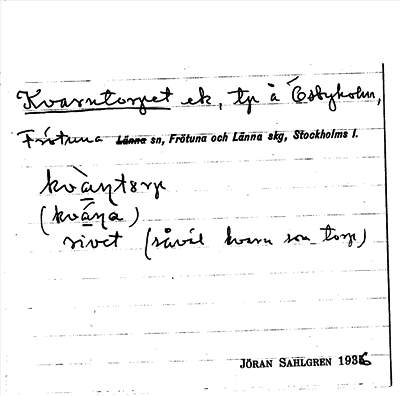 Kvarntorpet ek, tp å Ösbyholm,
Frötuna Länna sn, Frötuna och Länna skg, Stockholms l.
kvàɳtorp
(kváɳa)
rivet (såväl kvarn som torp)
JÖRAN SAHLGREN 1936